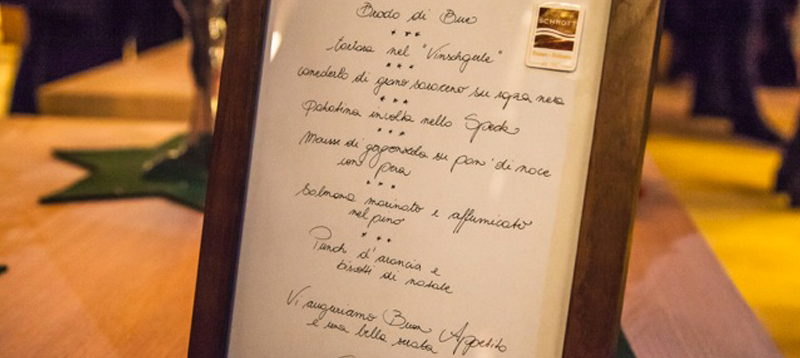 SCHROTT
Brodo di Bue
***
tartara nel "Vinschgerle"
***
canederlo di grano saraceno su rapa nera
***
Patatina involta nello Speck
***
Mousse di gorgonzola su pan di noce
con pera
***
Salmone marinato e affumicato
nel pino
***
Punch d'arancia e
biscotti di natale
Vi auguriamo Buon Appetito
e una bella serata